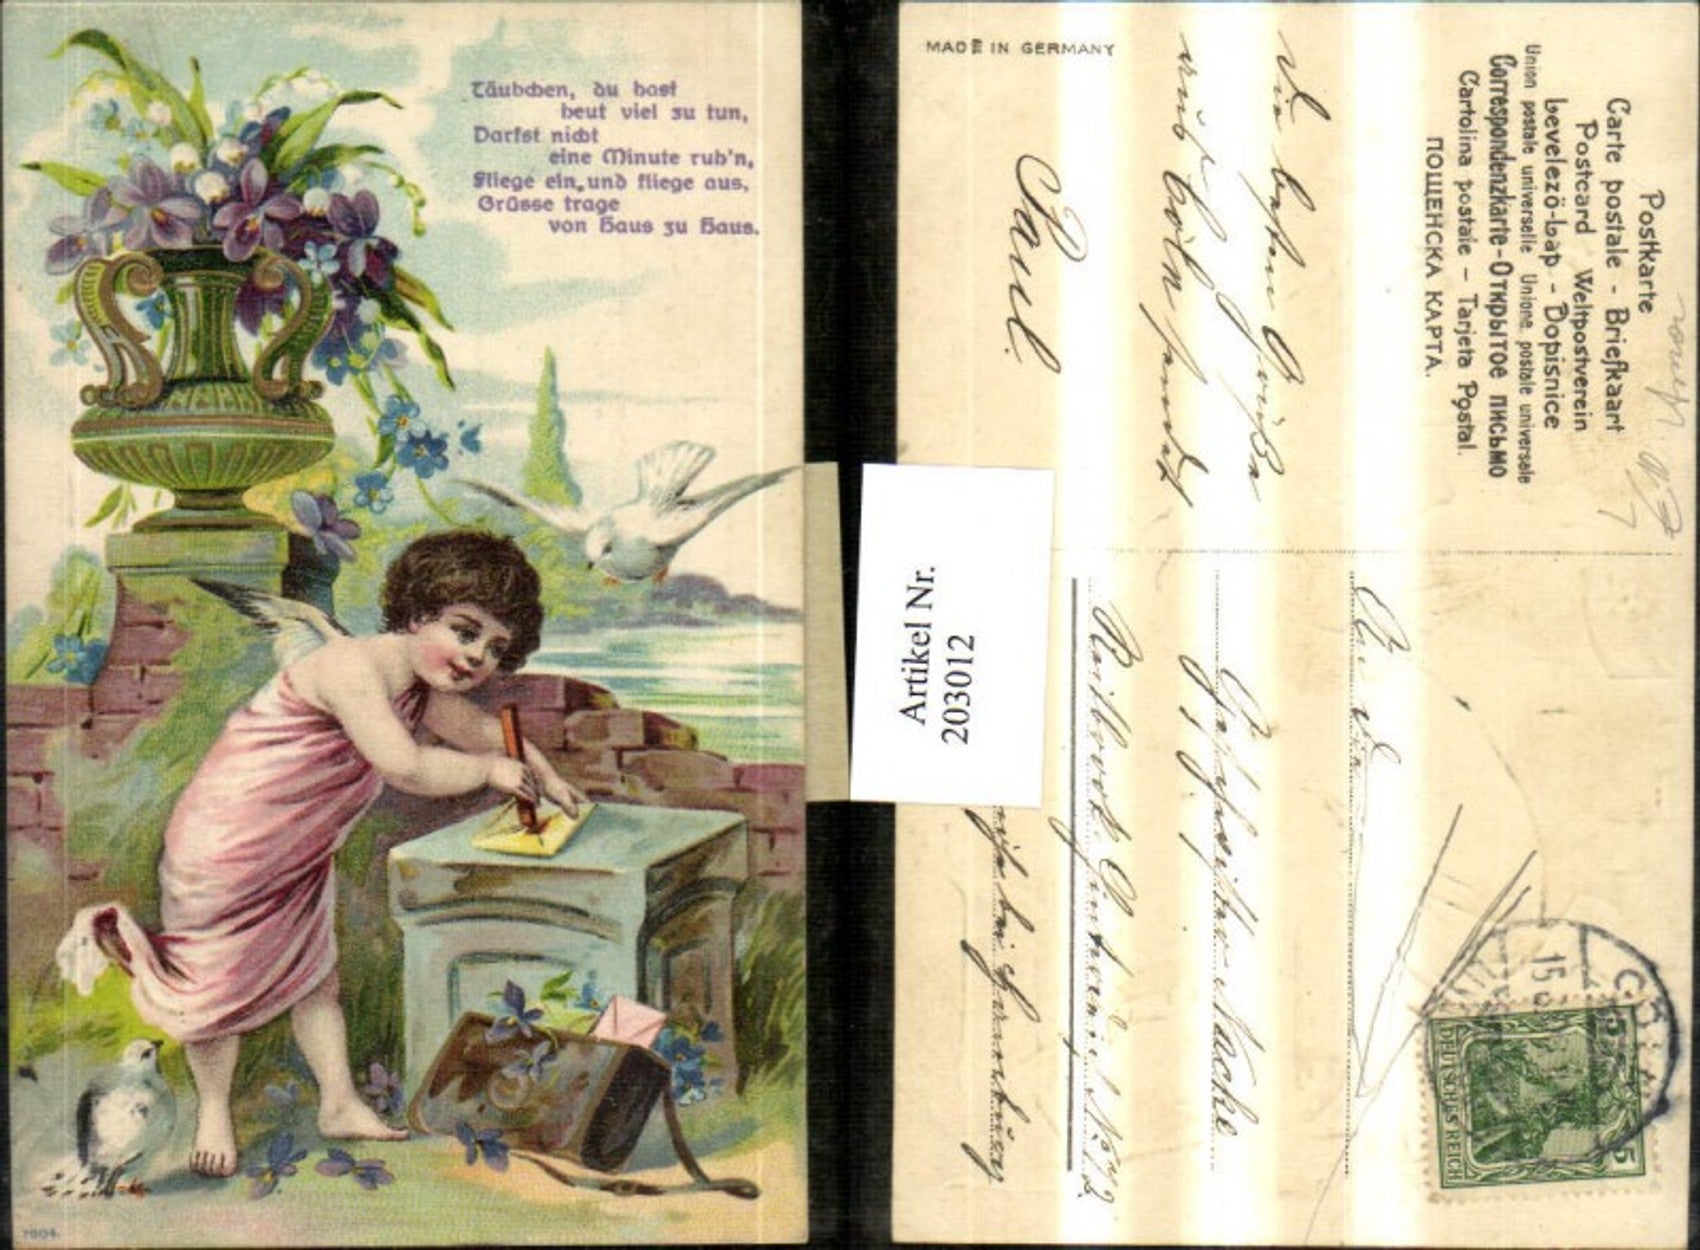 Täubchen, du hast
heut viel zu tun,
Darfst nicht
eine Minute ruh'n,
Fliege ein, und fliege aus,
Grüsse trage
von Haus zu Haus.
7904
MADE IN GERMANY
Postkarte
Carte postale - Briefkaart
Postcard Weltpostverein
Levelezö-Lap - Dopisnice
Union postale universelle Unione postale universale
Correspondenzkarte - Открытое письмо
Cartolina postale - Tarjeta Postal.
ПОЩЕНСКА КАРТА.
Die besten Grüße
aus Cöln sendet
Paul.
An den
Nache
N° 42
Artikel Nr.
203012
CÖLN
15
DEUTSCHES REICH
5